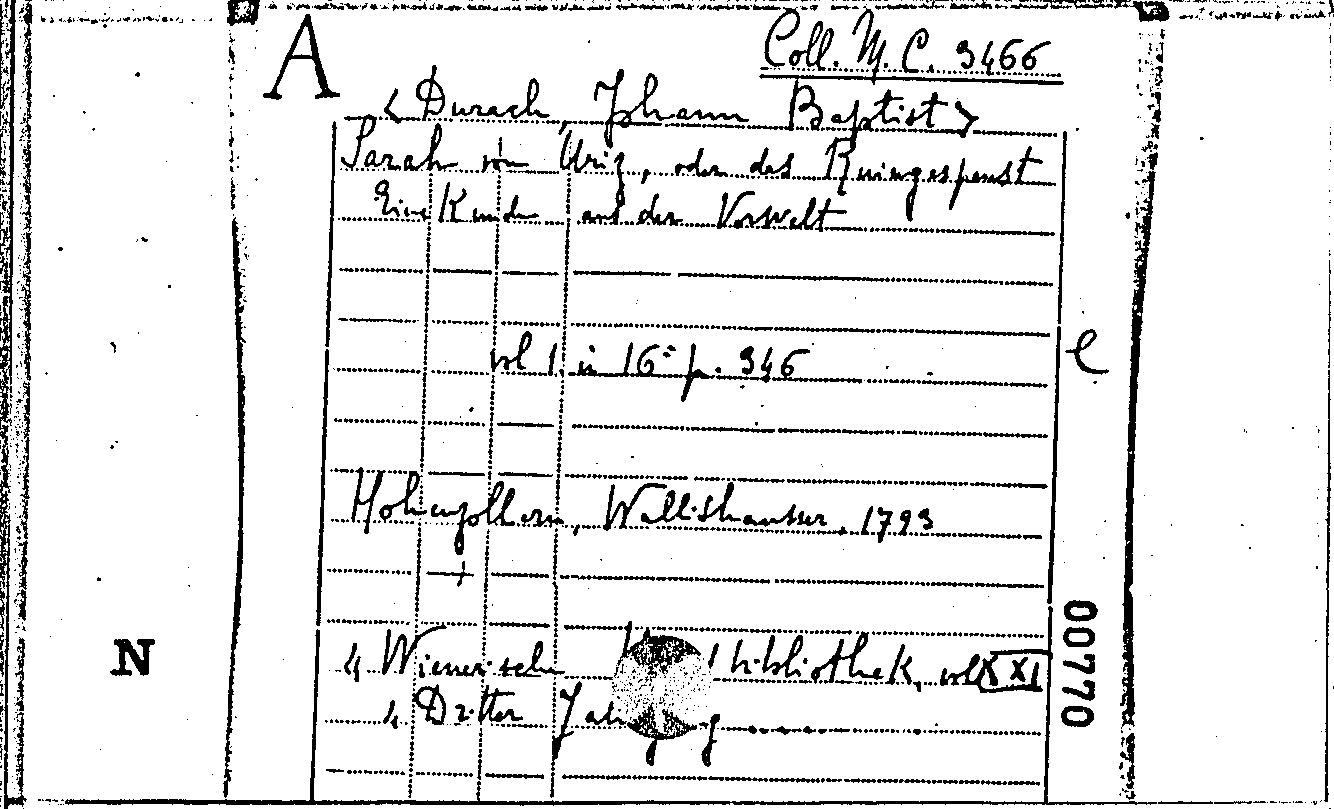 A
Coll. M. C. 3466
<Durach, Johann Baptist>
Sarah von Uriz, oder das Ruinengespenst
Eine Kunde aus der Vorwelt
vol 1. in 16° p. 346
e
Hohenzollern, Wallishausser, 1793
+
N
" Wienerische bibliothek, vol XXI
" Dritter Jahrgang
00770